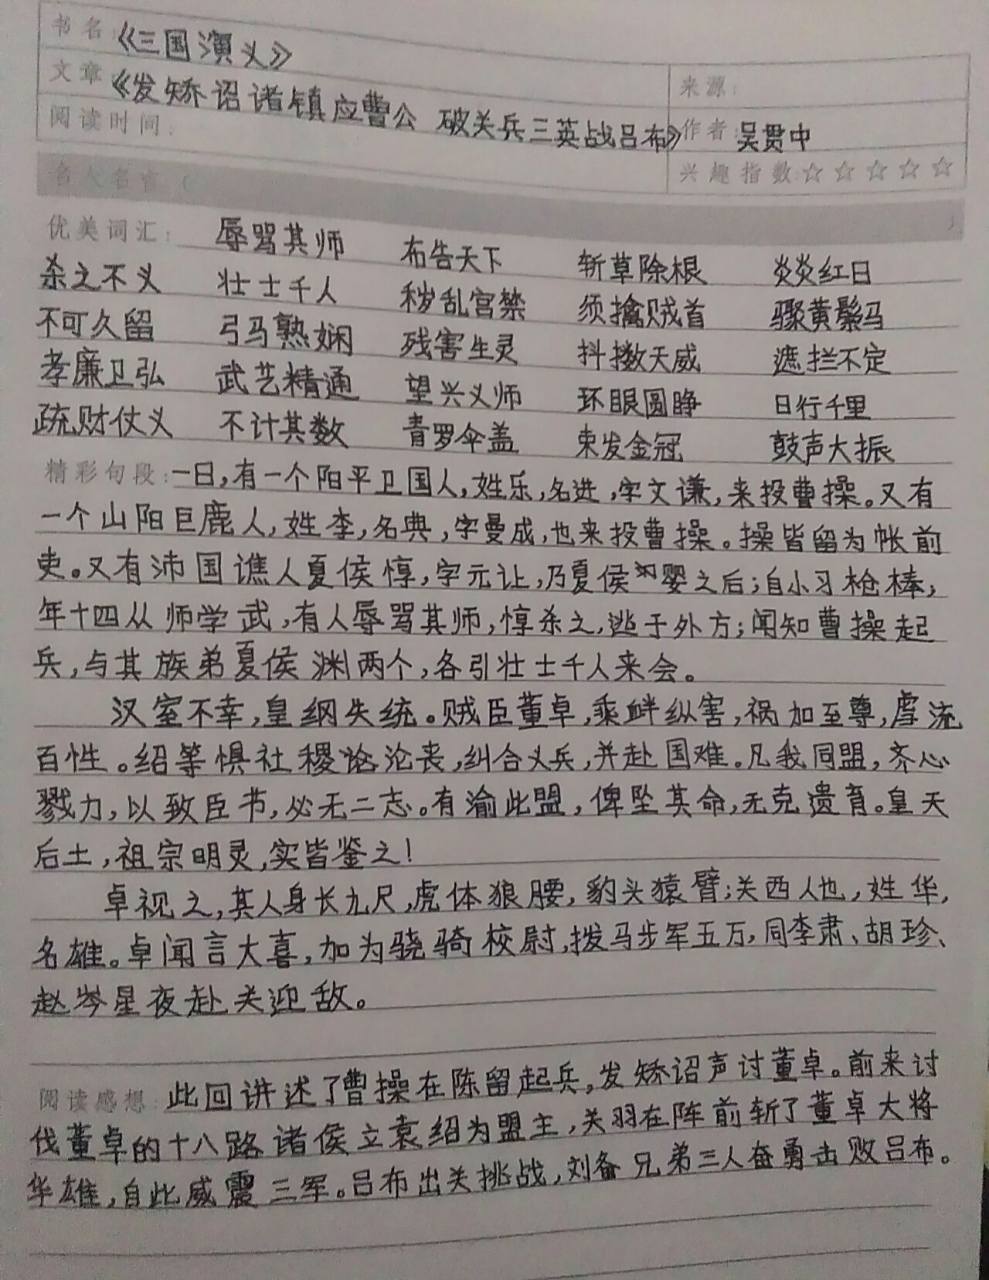 书名：《三国演义》
文章：《发矫诏诸镇应曹公 破关兵三英战吕布》
来源：
阅读时间：
作者：吴贯中
兴趣指数☆☆☆☆☆
名人名言（ ）
优美词汇： 辱骂其师 布告天下 斩草除根 炎炎红日
杀之不义 壮士千人 秽乱宫禁 须擒贼首 骤黄鬃马
不可久留 弓马熟娴 残害生灵 抖擞天威 遮拦不定
孝廉卫弘 武艺精通 望兴义师 环眼圆睁 日行千里
疏财仗义 不计其数 青罗伞盖 束发金冠 鼓声大振
精彩句段：一日，有一个阳平卫国人，姓乐，名进，字文谦，来投曹操。又有
一个山阳巨鹿人，姓李，名典，字曼成，也来投曹操。操皆留为帐前
吏。又有沛国谯人夏侯惇，字元让，乃夏侯婴之后；自小习枪棒，
年十四从师学武，有人辱骂其师，惇杀之，逃于外方；闻知曹操起
兵，与其族弟夏侯渊两个，各引壮士千人来会。
汉室不幸，皇纲失统。贼臣董卓，乘衅纵害，祸加至尊，虐流
百性。绍等惧社稷论沦丧，纠合义兵，并赴国难。凡我同盟，齐心
戮力，以致臣节，必无二志。有渝此盟，俾坠其命，无克遗育。皇天
后土，祖宗明灵，实皆鉴之！
卓视之，其人身长九尺，虎体狼腰，豹头猿臂；关西人也，姓华，
名雄。卓闻言大喜，加为骁骑校尉，拨马步军五万，同李肃、胡珍、
赵岑星夜赴关迎敌。
阅读感想：此回讲述了曹操在陈留起兵，发矫诏声讨董卓。前来讨
伐董卓的十八路诸侯立袁绍为盟主，关羽在阵前斩了董卓大将
华雄，自此威震三军。吕布出关挑战，刘备兄弟三人奋勇击败吕布。